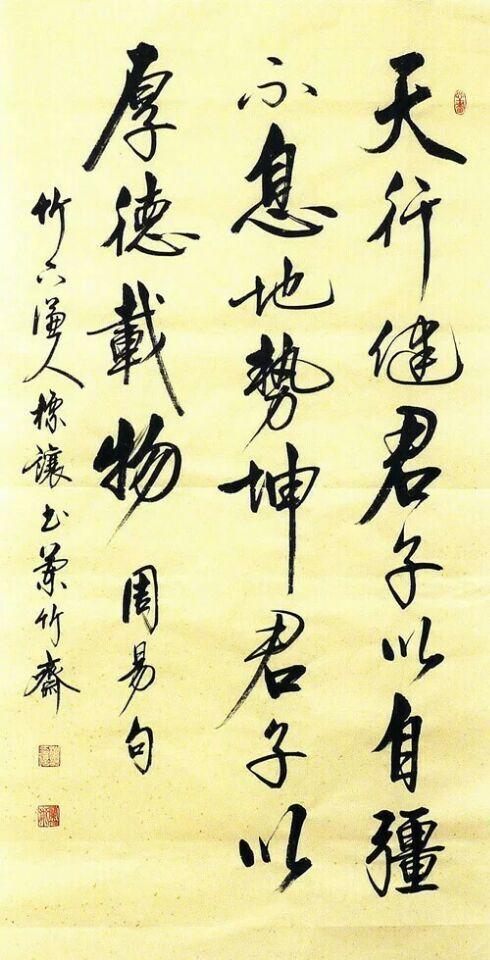 天行健君子以自彊
不息地勢坤君子以
厚德載物 周易句
竹人讓书竹齋